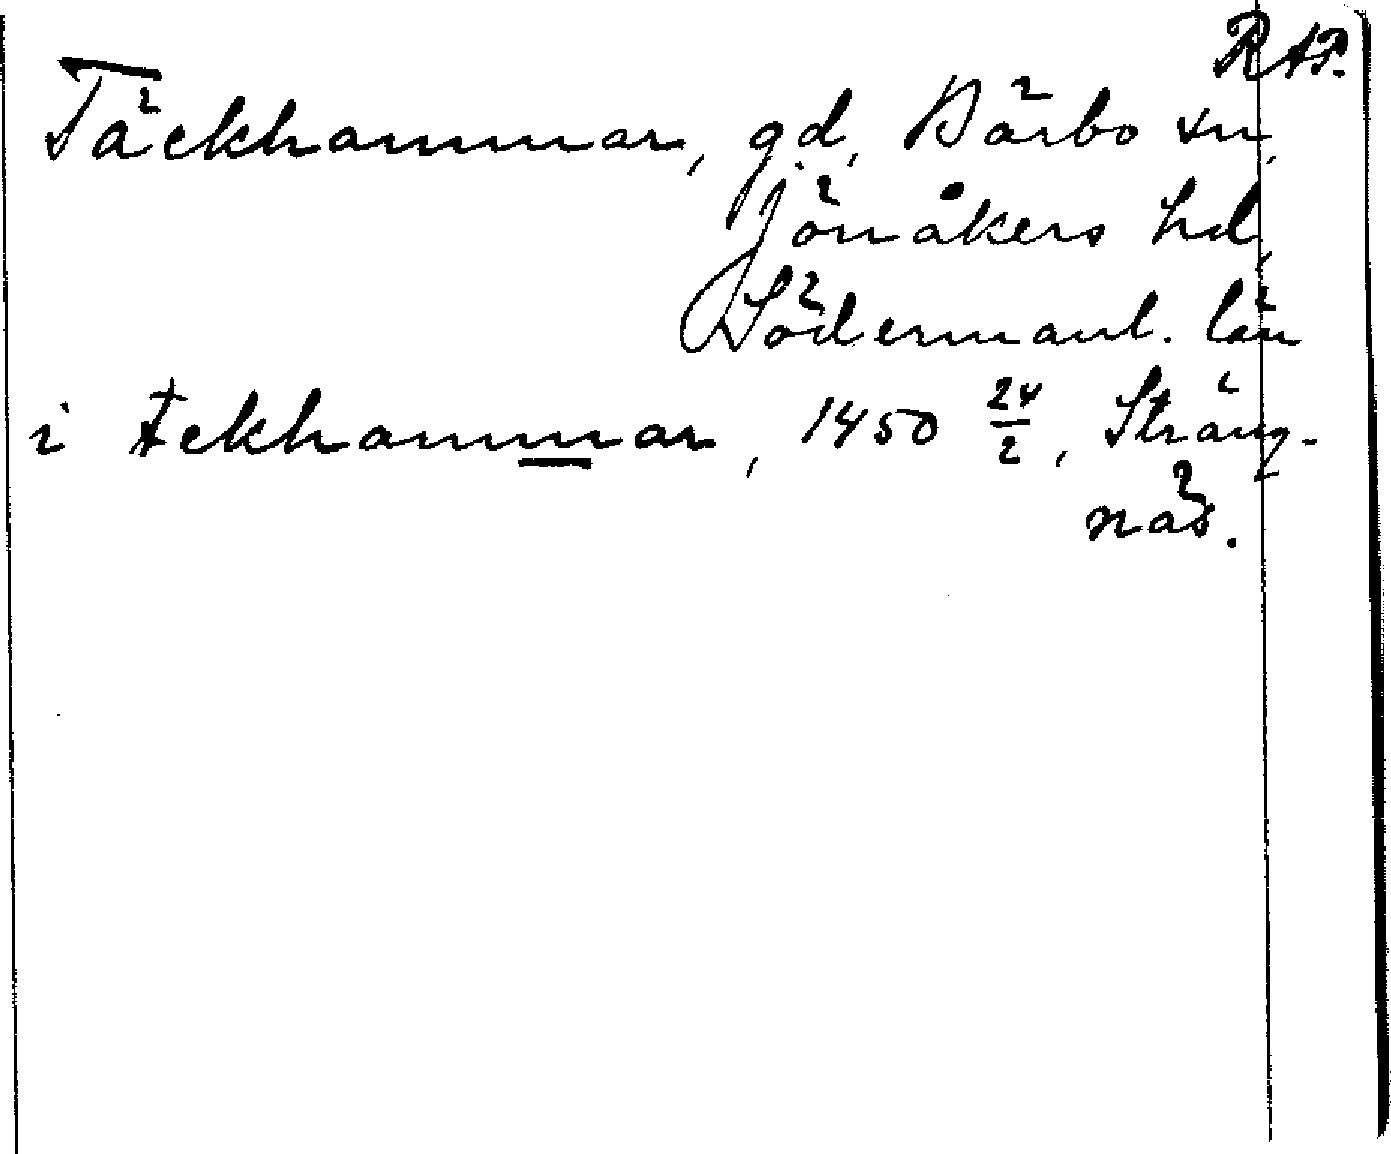 RAP.
Täckhammar, gd, Bärbo sn,
Jönåkers hd,
Södermanl. län
i tekhammar, 1450 24/2, Sträng-
näs.